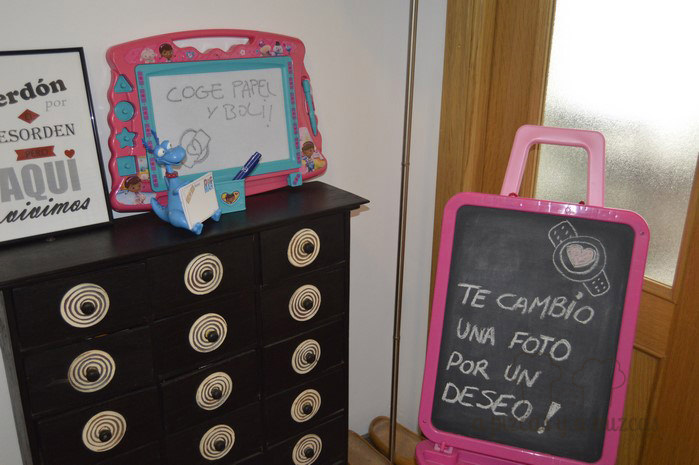 erdón
por
ESORDEN
PERO
AQUÍ
vivimos
COGE PAPEL
Y BOLI!
TE CAMBIO
UNA FOTO
POR UN
DESEO!